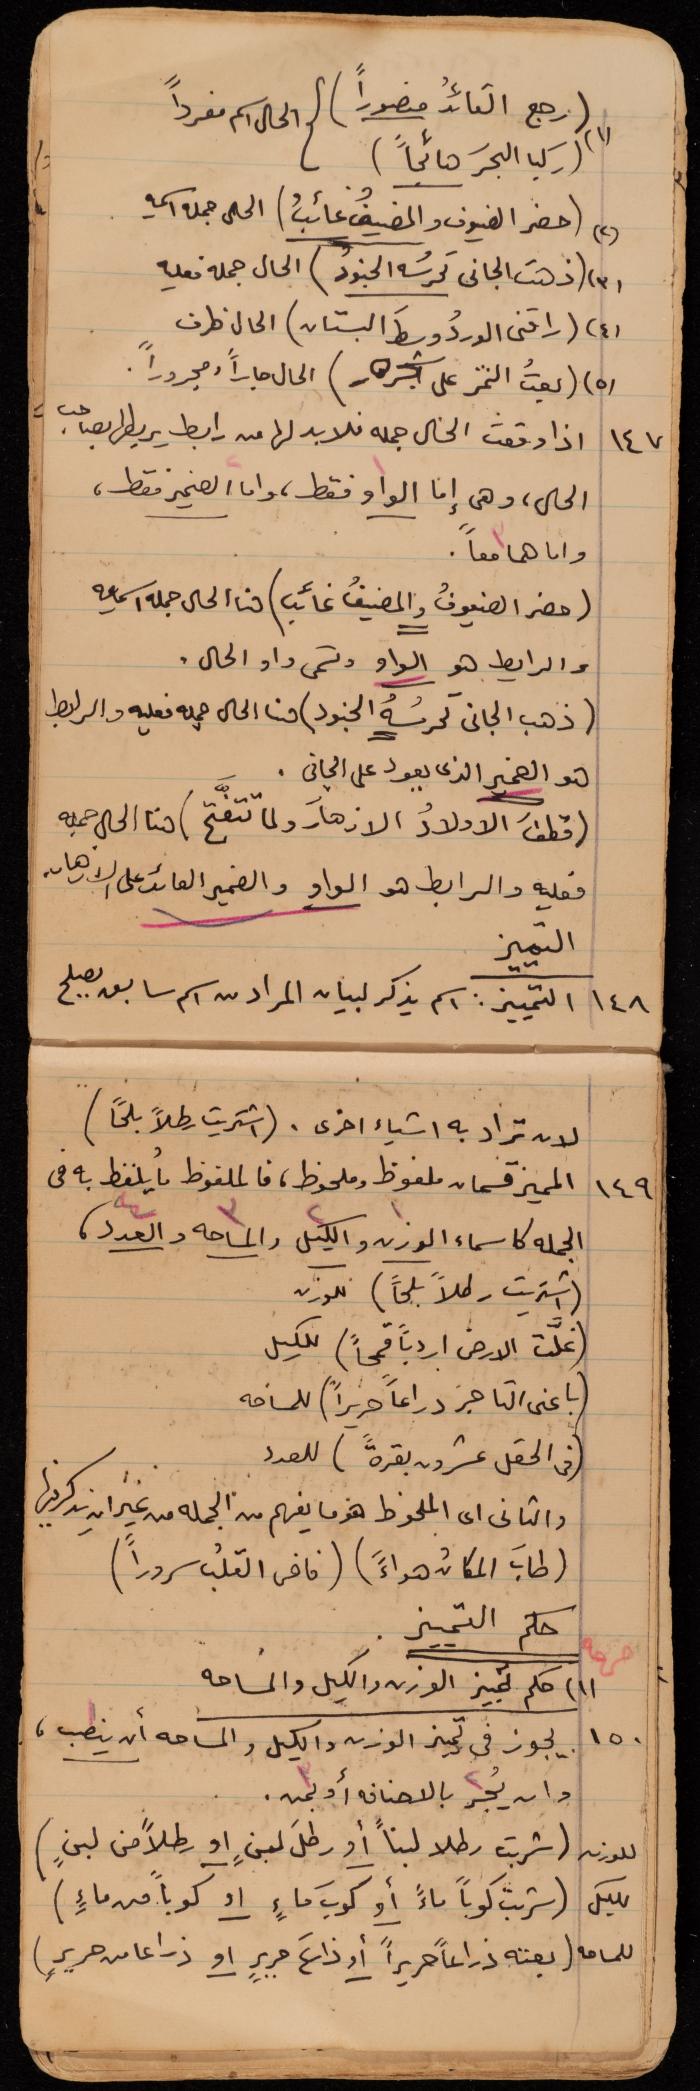 (رجع القائدُ منصوراً) } الحال اسم مفرداً
(١) (ركبا البحرَ هائجاً)
(٢) (حضر الضيوف والمضيفُ غائبُ) الحال جمله اسميه
(٣) (ذهبَ الجانى تحرسُه الجنودُ) الحال جمله فعليه
(٤) (راقنى الوردُ وسطَ البستان) الحال ظرف
(٥) (بعتُ الثمَر على) الحال جاراً ومجروراً.
١٤٧ اذا وقعت الحال جمله فلا بد لها من رابط يربطها بصاحب
الحال، وهى إما الواو فقط، واما الضمير فقط،
واما هما معاً.
(حضر الضيوفُ والمضيفُ غائب) هنا الحال جمله اسميه
والرابط هو الواو وتسمى واو الحال.
(ذهب الجانى تحرسُهُ الجنود) هنا الحال جمله فعليه والرابط
هو الضمير الذى يعود على الجانى.
(قطفَ الاولادُ الازهارَ ولما تتفتَّح) هنا الحال جمله
فعليه والرابط هو الواو والضمير العائد على الازهار.
التمييز
١٤٨ التمييز: اسم يذكر لبيان المراد من اسم سابق يصلح
لان تراد به اشياء اخرى. (اشتريت رطلاً بلحًا)
١٤٩ المميز قسمان ملفوظ وملحوظ، فالملفوظ ما يُلفظ به فى
١ ٢ ٣ ٤
الجمله كاسماء الوزن والكيل والمساحه والعدد،
(اشتريت رطلاً بلحاً) للوزن
(غلَّت الارض اردباً قمحاً) للكيل
(باعنى التاجرَ دراعاً حريراً) للمساحه
(فى الحقل عشرون بقرةً) للعدد
والثانى اى الملحوظ هو ما يفهم من الجمله من غير ان يذكر فيها
(طابَ المكانُ هواءً) (فاض القلبُ سروراً)
حكم التمييز.
(١) حكم تمييز الوزن والكيل والمساحه
١٥٠ يجوز فى تمييز الوزن والكيل والمساحه أن ينصب،
وان يُجر بالاضافه أو بمن.
للوزن (شربت رطلا لبناً أو رطلَ لبنٍ او رطلاً من لبنٍ)
للكيل (شربت كوباً ماءً أو كوبَ ماءٍ او كوباً من ماءٍ)
للمساحه (بعته ذراعاً حريراً أو ذراعَ حريرٍ او ذراعا من حريرٍ)